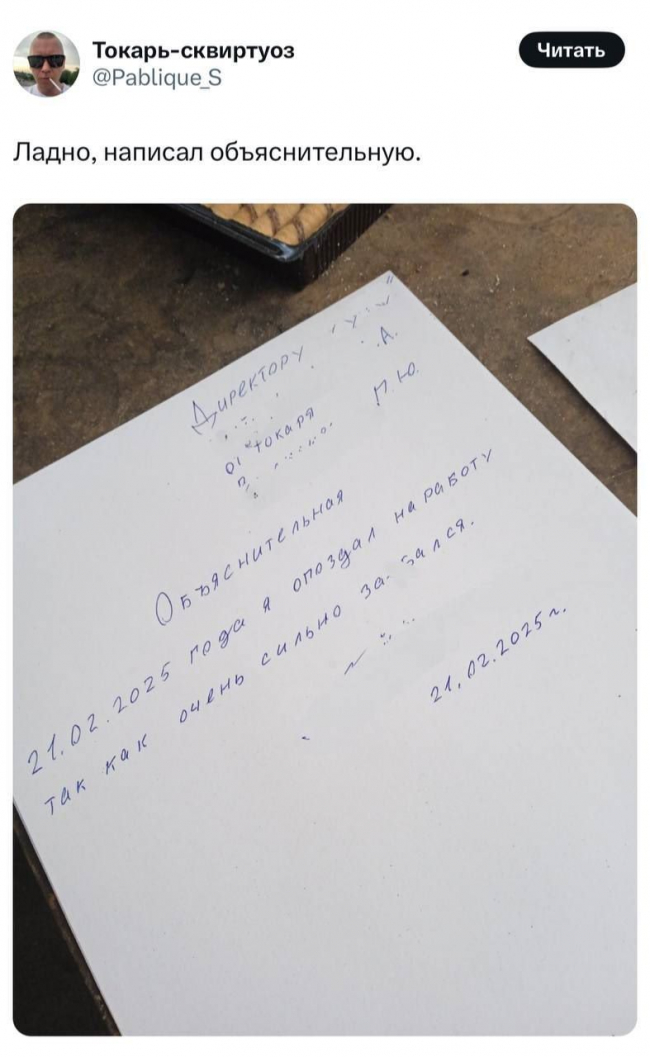 Токарь-сквиртуоз
@Pablique_S
Читать
Ладно, написал объяснительную.
Директору
А.
от токаря
П.Ю.
Объяснительная
21.02.2025 года я опоздал на работу
так как очень сильно
21.02.2025г.